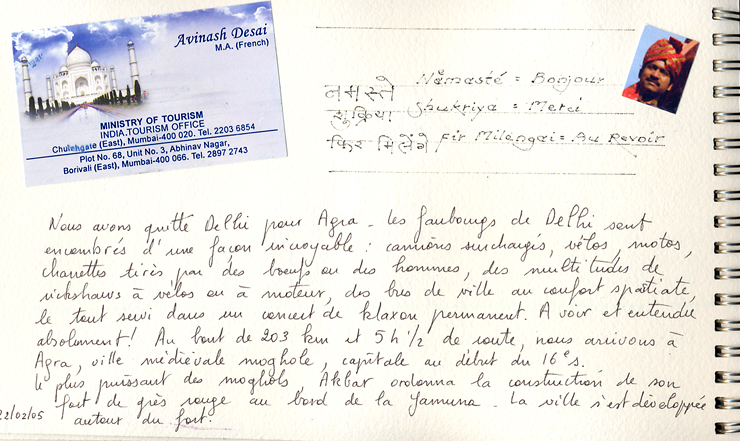 Avinash Desai
M.A. (French)
MINISTRY OF TOURISM
INDIA.TOURISM OFFICE
Churchgate (East), Mumbai-400 020. Tel. 2203 6854
Plot No. 68, Unit No. 3, Abhinav Nagar,
Borivali (East), Mumbai-400 066. Tel. 2897 2743
नमस्ते Namasté = Bonjour
शुक्रिया Shukriya = Merci
फिर मिलेंगे fir Milengai = Au Revoir
Nous avons quitté Delhi pour Agra - les faubourgs de Delhi sont
encombrés d'une façon incroyable : camions surchargés, vélos, motos,
charettes tirés par des boeufs ou des hommes, des multitudes de
rickshaws à vélos ou à moteur, des bus de ville au confort spatiate,
le tout servi dans un concert de klaxon permanent. A voir et entendre
absolument! Au bout de 203 km et 5 h 1/2 de route, nous arrivons à
Agra, ville médiévale moghole, capitale au début du 16e s.
le plus puissant des moghols, Akbar ordonna la construction de son
fort de grès rouge au bord de la Yamuna - La ville s'est développée
22/02/05 autour du fort.